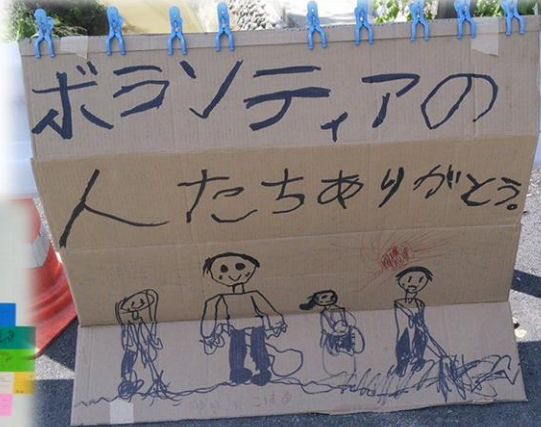 ボランティアの
人たちありがとう。